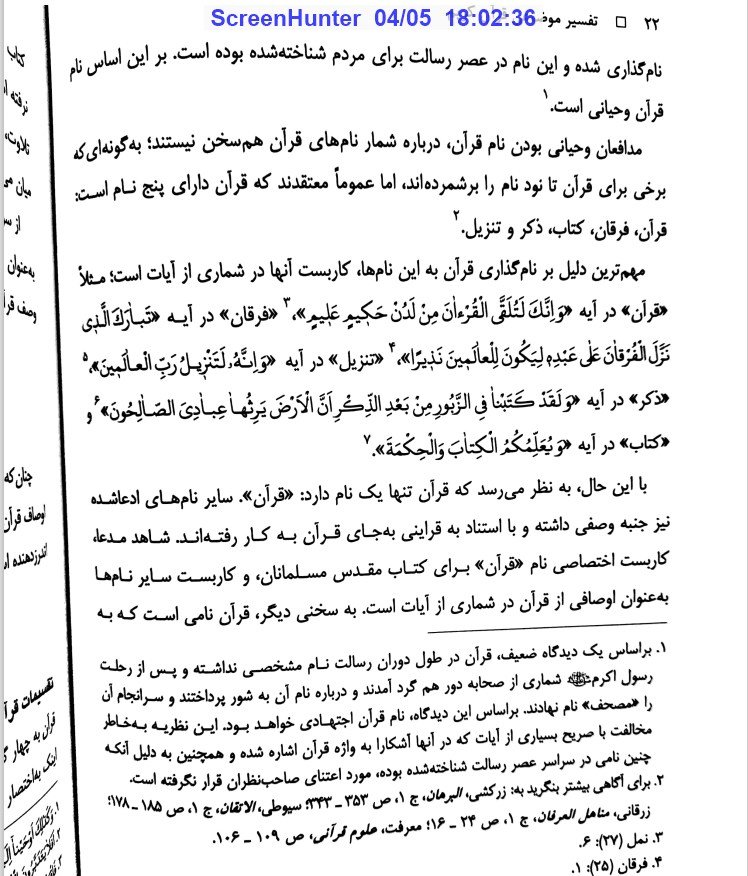 ScreenHunter 04/05 18:02:36
۲۲ □ تفسیر
نام‌گذاری شده و این نام در عصر رسالت برای مردم شناخته‌شده بوده است. بر این اساس نام
قرآن وحیانی است.۱
مدافعان وحیانی بودن نام قرآن، درباره شمار نام‌های قرآن هم‌سخن نیستند؛ به‌گونه‌ای‌که
برخی برای قرآن تا نود نام را برشمرده‌اند، اما عموماً معتقدند که قرآن دارای پنج نـام اسـت:
قرآن، فرقان، کتاب، ذکر و تنزیل.۲
مهم‌ترین دلیل بر نام‌گذاری قرآن به این نام‌ها، کاربست آنها در شماری از آیات است؛ مـثلاً
«قرآن» در آیه «وَاِنَّكَ لَتُلَقَّی الْقُرْءانَ مِنْ لَدُنْ حَکیمٍ عَلیمٍ»،۳ «فرقان» در آیـه «تَبـارَكَ الَّذی
نَزَّلَ الْفُرْقانَ عَلی عَبْدِهِ لِیَکُونَ لِلْعالَمینَ نَذیرًا»،۴ «تنزیل» در آیه «وَاِنَّهُ لَتَنْزیـلُ رَبِّ الْعـالَمینَ»،۵
«ذکر» در آیه «وَلَقَدْ کَتَبْنا فِی الزَّبُورِ مِنْ بَعْدِ الذِّکْرِ اَنَّ الْاَرْضَ یَرِثُهـا عِبـادِیَ الصّـالِحُونَ»۶ و
«کتاب» در آیه «وَیُعَلِّمُکُمُ الْکِتابَ وَالْحِکْمَةَ».۷
با این حال، به نظر می‌رسد که قرآن تنها یک نام دارد: «قرآن». سایر نام‌های ادعاشده
نیز جنبه وصفی داشته و با استناد به قراینی به‌جای قـرآن بـه کـار رفتـه‌انـد. شـاهد مـدعا،
کاربست اختصاصی نام «قرآن» بـرای کتـاب مقـدس مسـلمانان، و کاربسـت سـایر نـام‌هـا
به‌عنوان اوصافی از قرآن در شماری از آیات است. به سخنی دیگر، قرآن نامی است کـه بـه
۱. براساس یک دیدگاه ضعیف، قرآن در طول دوران رسالت نـام مشخصـی نداشـته و پـس از رحلـت
رسول اکرمﷺ شماری از صحابه دور هم گرد آمدند و درباره نام آن به شور پرداختند و سـرانجام آن
را «مصحف» نام نهادند. براساس این دیدگاه، نام قرآن اجتهادی خواهـد بـود. ایـن نظریـه بـه‌خـاطر
مخالفت با صریح بسیاری از آیات که در آنها آشکارا به واژه قرآن اشاره شده و همچنین به دلیل آنکـه
چنین نامی در سراسر عصر رسالت شناخته‌شده بوده، مورد اعتنای صاحب‌نظران قرار نگرفته است.
۲. برای آگاهی بیشتر بنگرید به: زرکشی، البرهان، ج ۱، ص ۳۵۳ ـ ۳۴۳؛ سیوطی، الاتقان، ج ۱، ص ۱۸۵ ـ ۱۷۸؛
زرقانی، مناهل العرفان، ج ۱، ص ۲۴ ـ ۱۶؛ معرفت، علوم قرآنی، ص ۱۰۹ ـ ۱۰۶.
۳. نمل (۲۷): ۶.
۴. فرقان (۲۵): ۱.
کتاب
تلاوت،
از
به‌عنوان
وصف
چنان که
اوصاف قرآن
تقسیمات
قرآن به چهار
اینک به‌اختصار